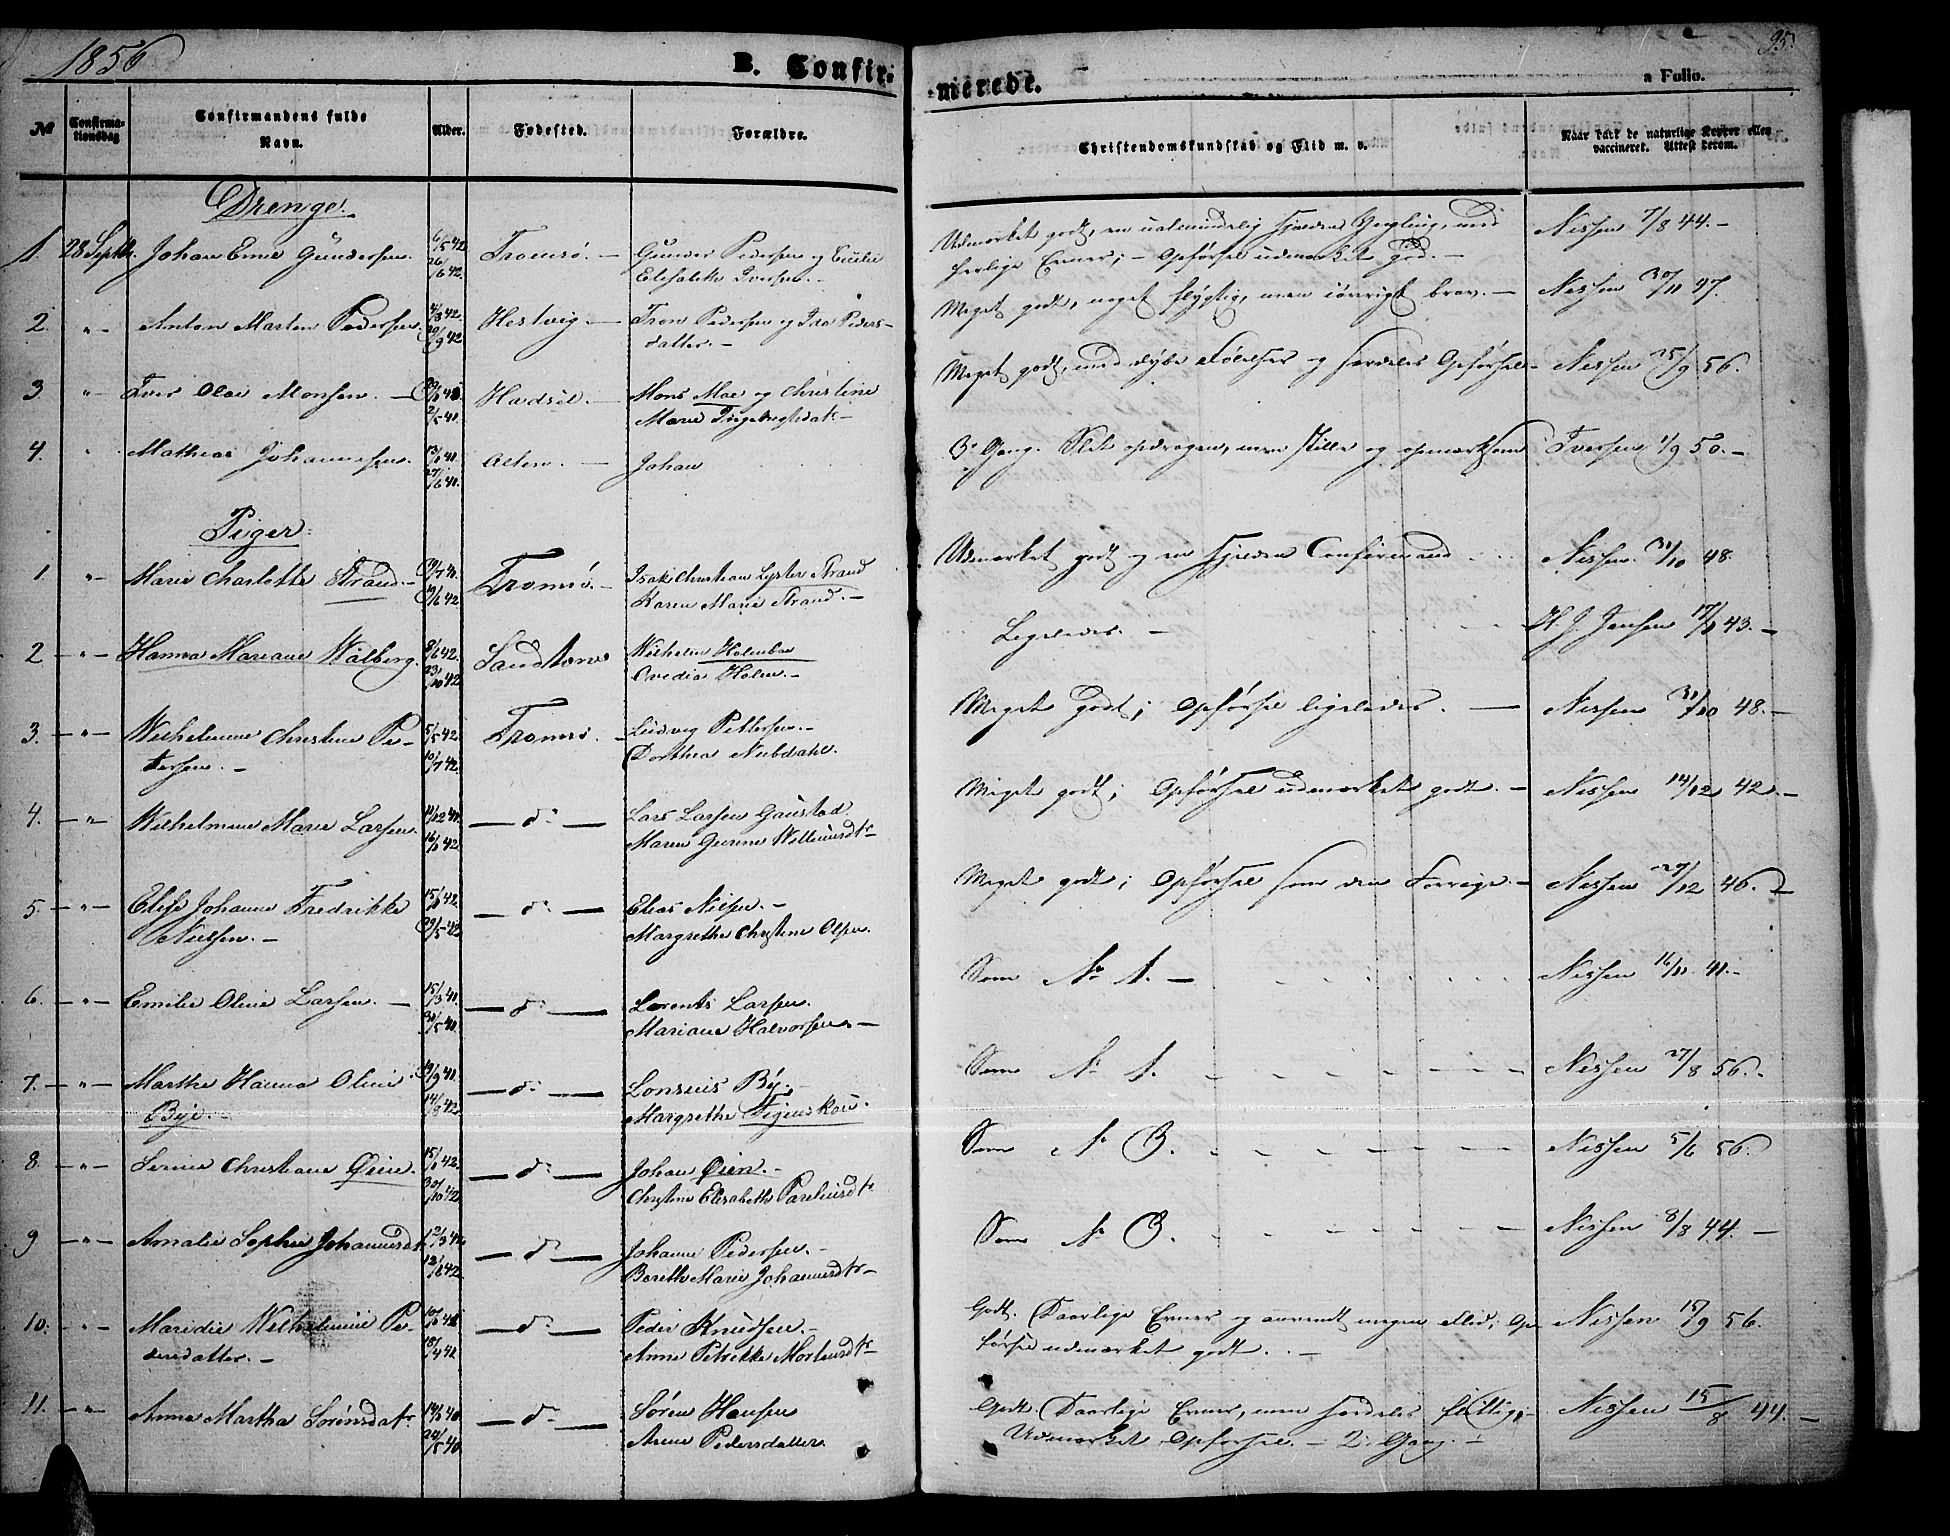 1856
B. Confir-
merede.
95.
a Folio.
№
Confirma-
tionsdag
Confirmandens fulde
Navn.
Alder.
Fødested.
Forældre.
Christendomskundskab og Flid m. v.
Naar havt de naturlige Kopper eller
vaccineret. Attest derom.
Drenge.
1. 28 Septbr. Johan Gundersen. 6/5 42. 26/6 42. Tromsö. Gunder Pedersen og Cecilie
Elisabeth Iversen.
Udmærket godt, en ualmindelig sjelden Yngling, med
herlige Evner; Opførsel udmærket god. Nissen 7/8 44.
2. " Anton Marten Pedersen. 4/8 42. 29/9 42. Hestvig. Tron Pedersen og Ida Peders-
datter.
Meget godt, noget flygtig, men iøvrigt brav. Nissen 30/11 47.
3 " Iver Olai Monsen. 2/5 41. Hadsel. Mons Moe og Christine
Marie Ingebrigtsdatr
Meget godt, med dybe Følelser og særdeles Opførsel. Nissen 25/9 56.
4. " Mathias Johannesen. 27/6 41. Alten. Johan
3. Gang. Slet opdragen, men stille og opmærksom Iversen 1/9 50.
Piger.
1. " Marie Charlotte Strand. 19/6 42 Tromsö. Isak Christian Lyster Strand
Karen Marie Strand.
Udmærket godt og en sjelden Confirmand Nissen 31/10 48.
2 " Hanna Mariane Walberg. 8/6 42. 23/10 42 Sandtorv Wilhelm Holmboe
Ovedia Holm.
Ligeledes. H. J. Jensen 43.
3. " Wilhelmine Christine Pe-
tersen. 5/5 42. 10/7 42. Tromsö. Ludvig Pettersen.
Dorthea Nubdahl.
Meget godt; Opførsel ligeledes. Nissen 31/10 48.
4. " Wilhelmine Marie Larsen. 11/12 41. 42. do Lars Larsen Gaustad.
Maren Gurine Willumsdtr
Meget godt; Opførsel udmærket godt. Nissen 14/12 42.
5. " Elise Johanne Fredrikke
Nielsen. 29/5 42 do Elias Nilsen.
Margrethe Christine Olsen.
Meget godt; Opførsel som den Forrige. Nissen 27/12 46.
6. " Emilie Oline Larsen. 15/3 41. 30/5 41. do Lorents Larsen.
Mariane Halvorsen
Som № 1. Nissen 16/11 41.
7. " Marthe Hanna Oline
Bye. 19/9 41. 42. do Lonsius By.
Margrethe Figenskou.
Som № 1. Nissen 27/8 56.
8. " Serine Christiane Øien. 42. 30/10 42. do Johan Øien.
Christine Elisabeth Pareliusdtr
Som № 3. Nissen 5/6 56.
9 " Amalie Sophie Johannesdtr. 12/3 42. 12/6 42. do Johannes Pedersen.
Berith Marie Johannesdtr
Som № 3. Nissen 8/8 44.
10. " Maridie Wilhelmine Pe-
dersdatter. 18/4 42 do Peder Knudsen.
Anne Petrikke Mortensdtr
Godt. Daarlige Evner og anvendt megen Flid; Op-
førsel udmærket godt. Nissen 15/9 56.
11. " Anne Martha Sörensdatr 24/5 40. do Sören Hansen
Arne Pedersdatter.
Godt. Daarlige Evner, men særdeles flittig;
Udmærket Opførsel. 2. Gang. Nissen 15/8 44.